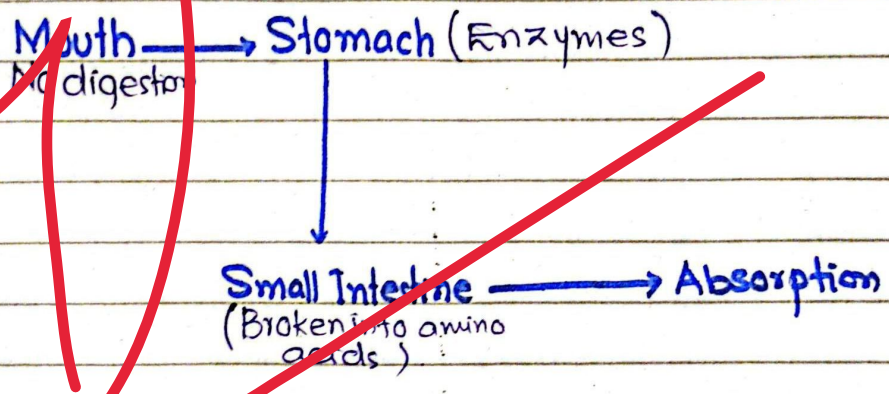 Mouth → Stomach (Enzymes)
No digestion
Small Intestine → Absorption
(Broken into amino
acids)